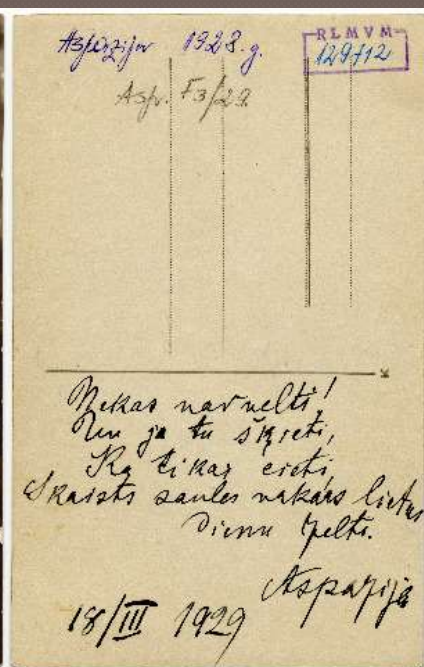 Aspazija 1928. g.
RLMVM
129712
Asp. F3/29
K
Nekas nav velti!
Un ja tu šķieti,
Ka tikai cieti,
Skaists saules vakars lietus
Dienu pelti.
Aspazija
18/III 1929